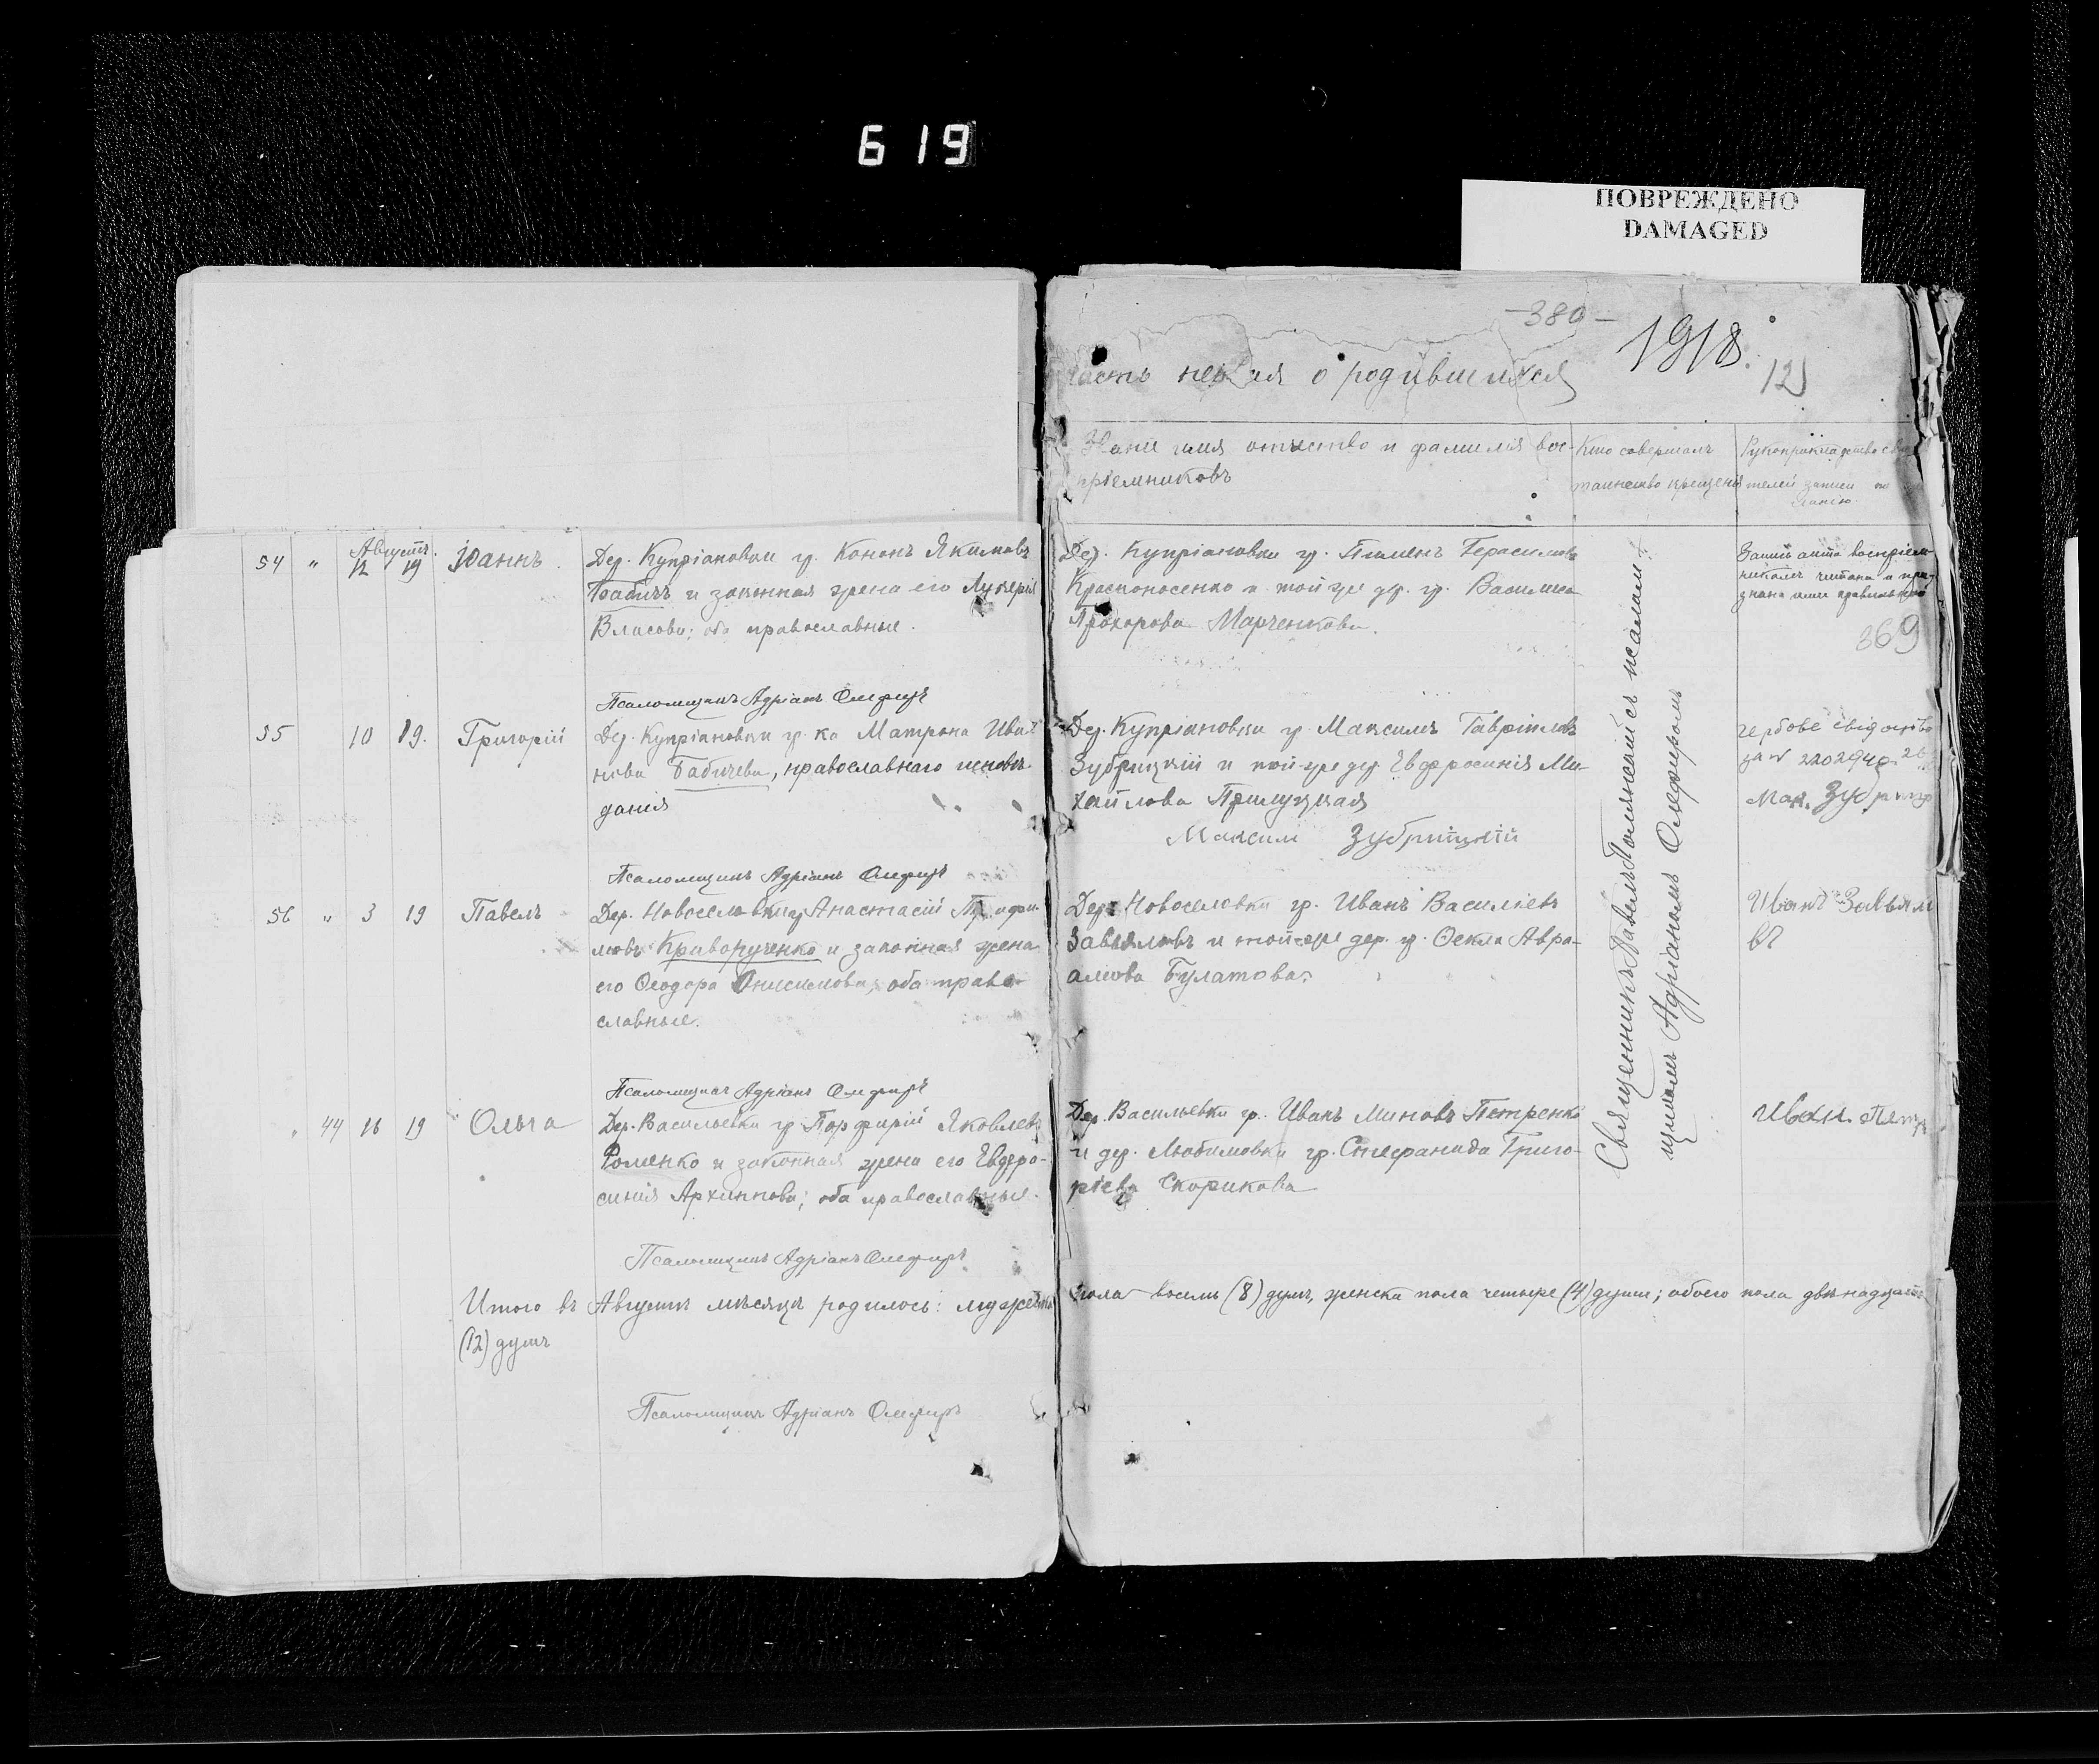 619
ПОВРЕЖДЕНО
DAMAGED
-380-
1918.
12
Часть первая о родившихся
Звание имя отчество и фамилія вос-
пріемниковъ
Кто совершалъ
таинство крещенія
Рукоприкладство свидѣ
телей записи по
54 " Августъ. 12 19 Іоаннъ.
Дер. Купріановки гр. Кононъ Якимовъ
Бабичъ и законная жена его Лукерія
Власова; оба православные.
Дер. Купріановки гр. Пименъ Герасимовъ
Красноносенко и той же дер. гр. Василиса
Прохорова Марченкова.
Запись акта воспріем-
никамъ читана и при-
знана ими правильною
369
Псаломщикъ Адріанъ Олефиръ
55 10 19. Григорій
Дер. Купріановки гр. ка Матрона Ива-
нова Бабичева, православнаго исповѣ-
данія
Дер. Купріановки гр. Максимъ Гавріиловъ
Зубрицкій и той же дер. Евфросинія Ми-
хайлова Прилуцкая
Максим Зубрицкій
гербове свідоцтво
за № 2202940
Мак. Зубриц
Псаломщикъ Адріанъ Олефиръ
56 " 3 19 Павелъ
Дер. Новоселовки гр. Анастасій
ловъ Криворученко и законная жена
его Ѳеодора Онисимова, оба право-
славные.
Дер. Новоселовки гр. Иванъ Василіевъ
Завьяловъ и той же дер. гр. Ѳекла Авра-
амова Булатова.
Иванъ Завьяло
въ
Псаломщикъ Адріанъ Олефиръ
44 16 19 Ольга
Дер. Васильевки гр. Порфирій Яковлевъ
Роменко и законная жена его Евфро-
синія Архиппова; оба православные.
Дер. Васильевки гр. Иванъ Миновъ Петренко
и дер. Любимовки гр. Стефанида Григо-
рієва Скорикова
Иван. Петр
Священникъ Павелъ Полянскій съ псалом-
щикомъ Адріаномъ Олефиромъ
Псаломщикъ Адріанъ Олефиръ
Итого въ Августѣ мѣсяцѣ родилось: мужеска пола восемь (8) душъ, женска пола четыре (4) души; обоего пола двѣнадцать
(12) душъ
Псаломщикъ Адріанъ Олефиръ